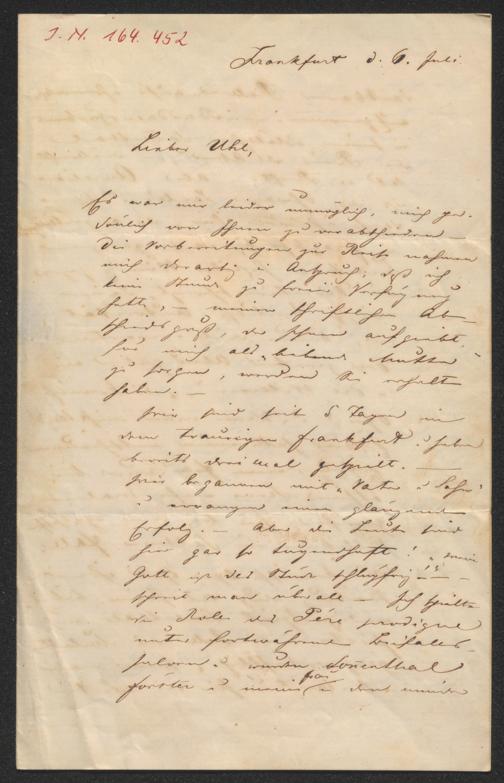 J. N. 164.452
Frankfurt d. 6. Juli
Lieber Uhl,
Es war mir leider unmöglich, mich per-
sönlich von Ihnen zu verabschieden
Die Vorbereitungen zur Reise nahmen
mich derartig in Anspruch, daß ich
keine Stunde zu freier Verfügung
hatte, – meinen schriftlichen Ab-
schiedsgruß, der Ihnen aufgiebt,
für mich als "liebende Mutter"
zu sorgen, werden Sie erhalten
haben. –
Wir sind seit 5 Tagen in
dem traurigen Frankfurt u haben
bereits dreimal gespielt. –
Wir begannen mit "Vater u Sohn"
u errangen einen glänzenden
Erfolg. – Aber die Leute sind
hier gar so tugendhaft! "mein
Gott ist das Stück schlüpfrig"!! –
schreit man überall – Ich spielte
die Rolle des Père prodigue
unter fortwährenden Beifalls-
salven u wurden Sonnenthal
Förster u meine Frau